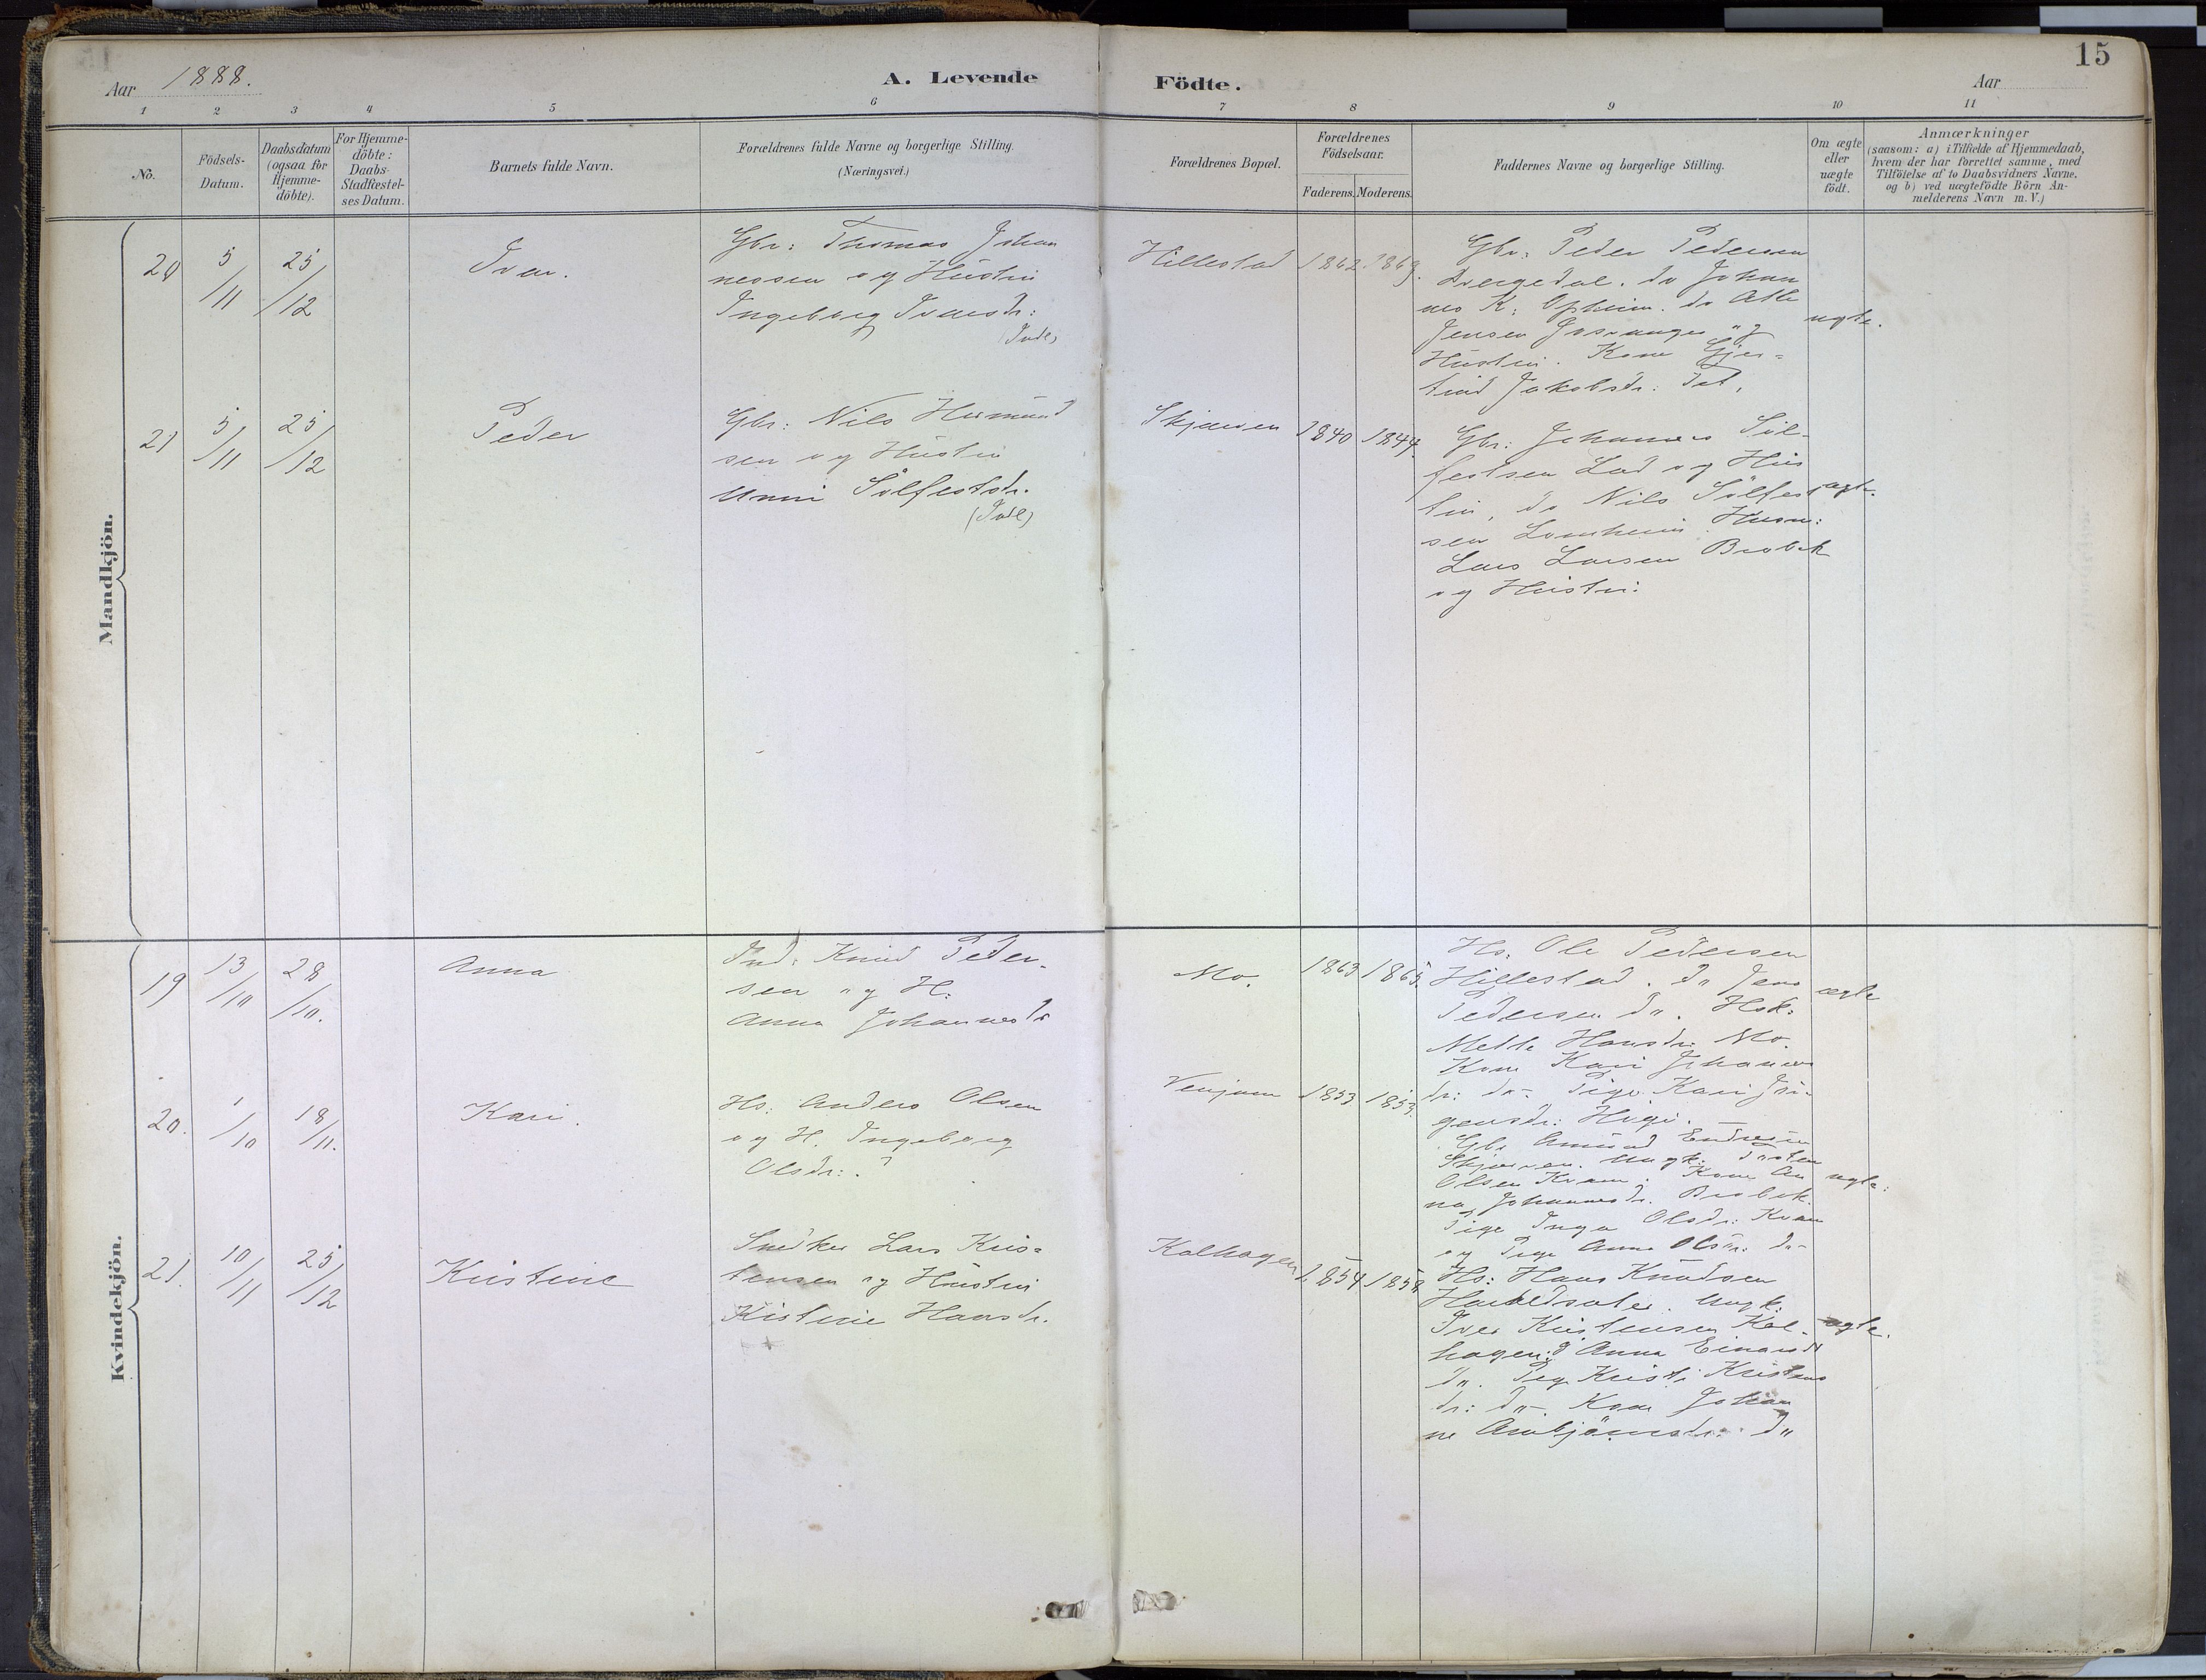 15
Aar 1888.
A. Levende
Födte.
Aar
1
2
3
4
5
6
7
8
9
10
11
No.
Födsels-
Datum.
Daabsdatum
(ogsaa for
Hjemme-
döbte).
For Hjemme-
döbte:
Daabs-
Stadfæstel-
ses Datum.
Barnets fulde Navn.
Forældrenes fulde Navne og borgerlige Stilling.
(Næringsvei.)
Forældrenes Bopæl.
Forældrenes
Födselsaar.
Faderens.
Moderens.
Faddernes Navne og borgerlige Stilling.
Om ægte
eller
uægte
födt.
Anmærkninger
(saasom: a) i Tilfælde af Hjemmedaab,
hvem der har forrettet samme, med
Tilföielse af to Daabsvidners Navne,
og b) ved uægtefödte Börn An-
melderens Navn m. V.)
Mandkjön.
20
5/11
25/12
Ivar.
Gbr: Thomas Johan
nessen og Hustru
Ingeborg Ivarsdr:
Hillestad
1862
1869.
Gbr: Peder Pedersen
Dvergedal. do Johan
nes K. Opheim. do Atle
Jensen
Hustru. Kone Gjer-
trud Jakobsdr.
ægte.
21
5/11
25/12
Peder
Gbr: Nils Hermund
sen og Hustru
Unni Sölfestsdr.
Skjerven
1840
1844.
Gbr: Johannes Söl-
festsen Lad og Hus
tru, do Nils Sölfest
sen Lomheim. Husm:
Lars Larsen Brobek
og Hustru:
ægte.
Kvindekjön.
19
13/10
28/10.
Anna
Ind: Knud Peder-
sen og H:
Anna Johannesdr
Mo.
1863
1865.
Hs. Ole Pedersen
Hillestad. do Jens
Pedersen do. Hsk:
Mette Hansdr: Mo.
Kone Kari Johannes
dr: do. Pige Kari Jör-
gensdr:
ægte
20.
1/10
18/11.
Kari.
Hs: Anders Olsen
og H. Ingeborg
Olsdr:
Venjum
1853
1853.
Gbr Amund Endresen
Skjerven. Ungk:
Olsen Kvam. Kone An
na Johannesdr. Brobek.
Pige Inga Olsdr: Kvam
og Pige Anna Olsdr: do
ægte:
21.
10/11
25/12
Kristine
Snedker Lars Kris-
tensen og Hustru
Kistine Hansdr.
Kolhagen
1854
1858
Hs: Hans Knudsen
Ungk:
Iver Kristensen Kol-
hagen. Anna Einarsdr
do. Pige Kristi Kristens
dr: do. Kone Johan
ne Anbjörnsdr: do
ægte.